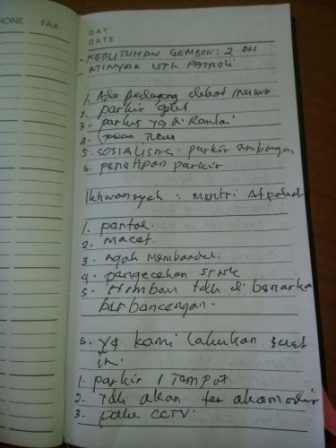 PHONE FAX
DAY
DATE
- KEBUTUHAN GEMBOK: 2 BH
- MINYAK UTK PATROLI
1. Ada pedagang dekat
2. parkir
3. parkir yg di Rantai
4.
5. SOSIALISASI parkir
6. penetipan parkir
Ikhwansyah : Mentri
1. pantas.
2. macet.
3. Agak Membandel.
4. pengecekan STNK
5. Himbau tdk di benarkan
berboncengan.
6. yg kami lakukan saat
ini.
1. parkir 1 Tempat
2. Tdk akan ter akomodir
3. pake CCTV.